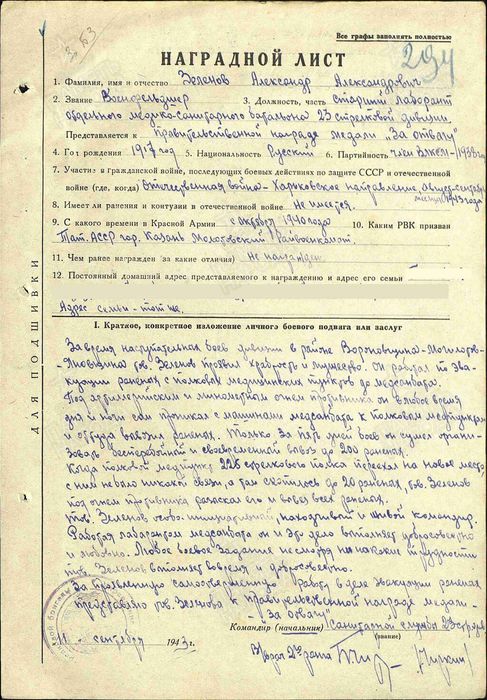 Все графы заполнять полностью
294
НАГРАДНОЙ ЛИСТ
1. Фамилия, имя и отчество Зеленов Александр Александрович
2. Звание Военфельдшер 3. Должность, часть старший лаборант
отдельного медико-санитарного батальона 23 стрелковой дивизии
Представляется к Правительственной награде медали „За отвагу"
4. Год рождения 1917 год 5. Национальность Русский 6. Партийность член ВЛКСМ 1938
7. Участие в гражданской войне, последующих боевых действиях по защите СССР и отечественной
войне (где, когда) Отечественная война - Харьковское направление Август-сентябрь
1943 года
8. Имеет ли ранения и контузии в отечественной войне Не имеет
9. С какого времени в Красной Армии с октября 1940 года 10. Каким РВК призван
Тат. АССР гор. Казань Молотовский Райвоенкомат
11. Чем ранее награжден (за какие отличия) Не награжден
12. Постоянный домашний адрес представляемого к награждению и адрес его семьи
Адрес семьи - тот же.
ДЛЯ ПОДШИВКИ
I. Краткое, конкретное изложение личного боевого подвига или заслуг
За время наступательных боев дивизии в районе
тов. Зеленов проявил храбрость и мужество. Он работал по эва-
куации раненых с полковых медицинских пунктов до медсанбата.
Под артиллерийским и минометном огнем противника он в любое время
дня и ночи сам проникал с машинами медсанбата к полковым медпунктам
и оттуда вывозил раненых. Только за пять дней боев он сумел органи-
зовать бесперебойный и своевременный вывоз до 200 раненых.
Когда полковой медпункт 225 стрелкового полка переехал на новое место
с ним не было никакой связи, а там скопилось до 20 раненых, тов. Зеленов
под огнем противника разыскал его и вывез всех раненых.
Тов. Зеленов особо инициативный, находчивый и живой командир.
Работая лаборантом медсанбата он и это дело выполняет добросовестно
и любовно. Любое боевое задание не смотря на какие трудности
тов. Зеленов выполняет вовремя и добросовестно.
За проявленную самоотверженную работу в деле эвакуации раненых
представляю тов. Зеленова к правительственной награде медали -
„За отвагу"
Командир (начальник) Санитарной службы 23
(звание)
11 - сентября 1943 г.
Врач 2го ранга